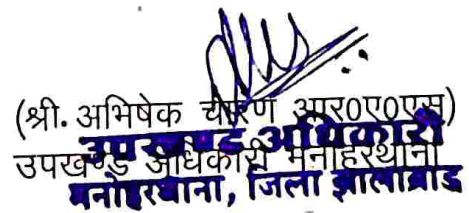 (श्री. अभिषेक चारण आर०ए०एस)
उपखण्ड अधिकारी
उपखण्ड अधिकारी मनोहरथाना
मनोहरथाना, जिला झालावाड